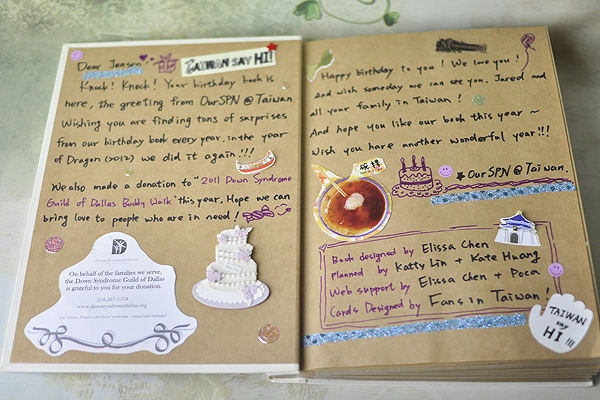 Dear Jensen
TAIWAN SAY HI!
Knock! Knock! Your birthday book is
here, the greeting from OurSPN @ Taiwan.
Wishing you are finding tons of surprises
from our birthday book every year, in the year
of Dragon (2012) we did it again!!!
We also made a donation to "2011 Down Syndrome
Guild of Dallas Buddy Walk" this year. Hope we can
bring love to people who are in need!
On behalf of the families we serve,
the Down Syndrome Guild of Dallas
is grateful to you for your donation.
214-267-1374
www.downsyndromedallas.org
Happy birthday to you! We love you!
And wish someday we can see you, Jared and
all your family in Taiwan!
And hope you like our book this year~
Wish you have another wonderful year!!!
★OurSPN @ Taiwan.
Book designed by Elissa Chen
Planned by Katty Lin + Kate Huang
Web support by Elissa Chen + Poca
Cards Designed by Fans in Taiwan!
TAIWAN
say
HI!!!